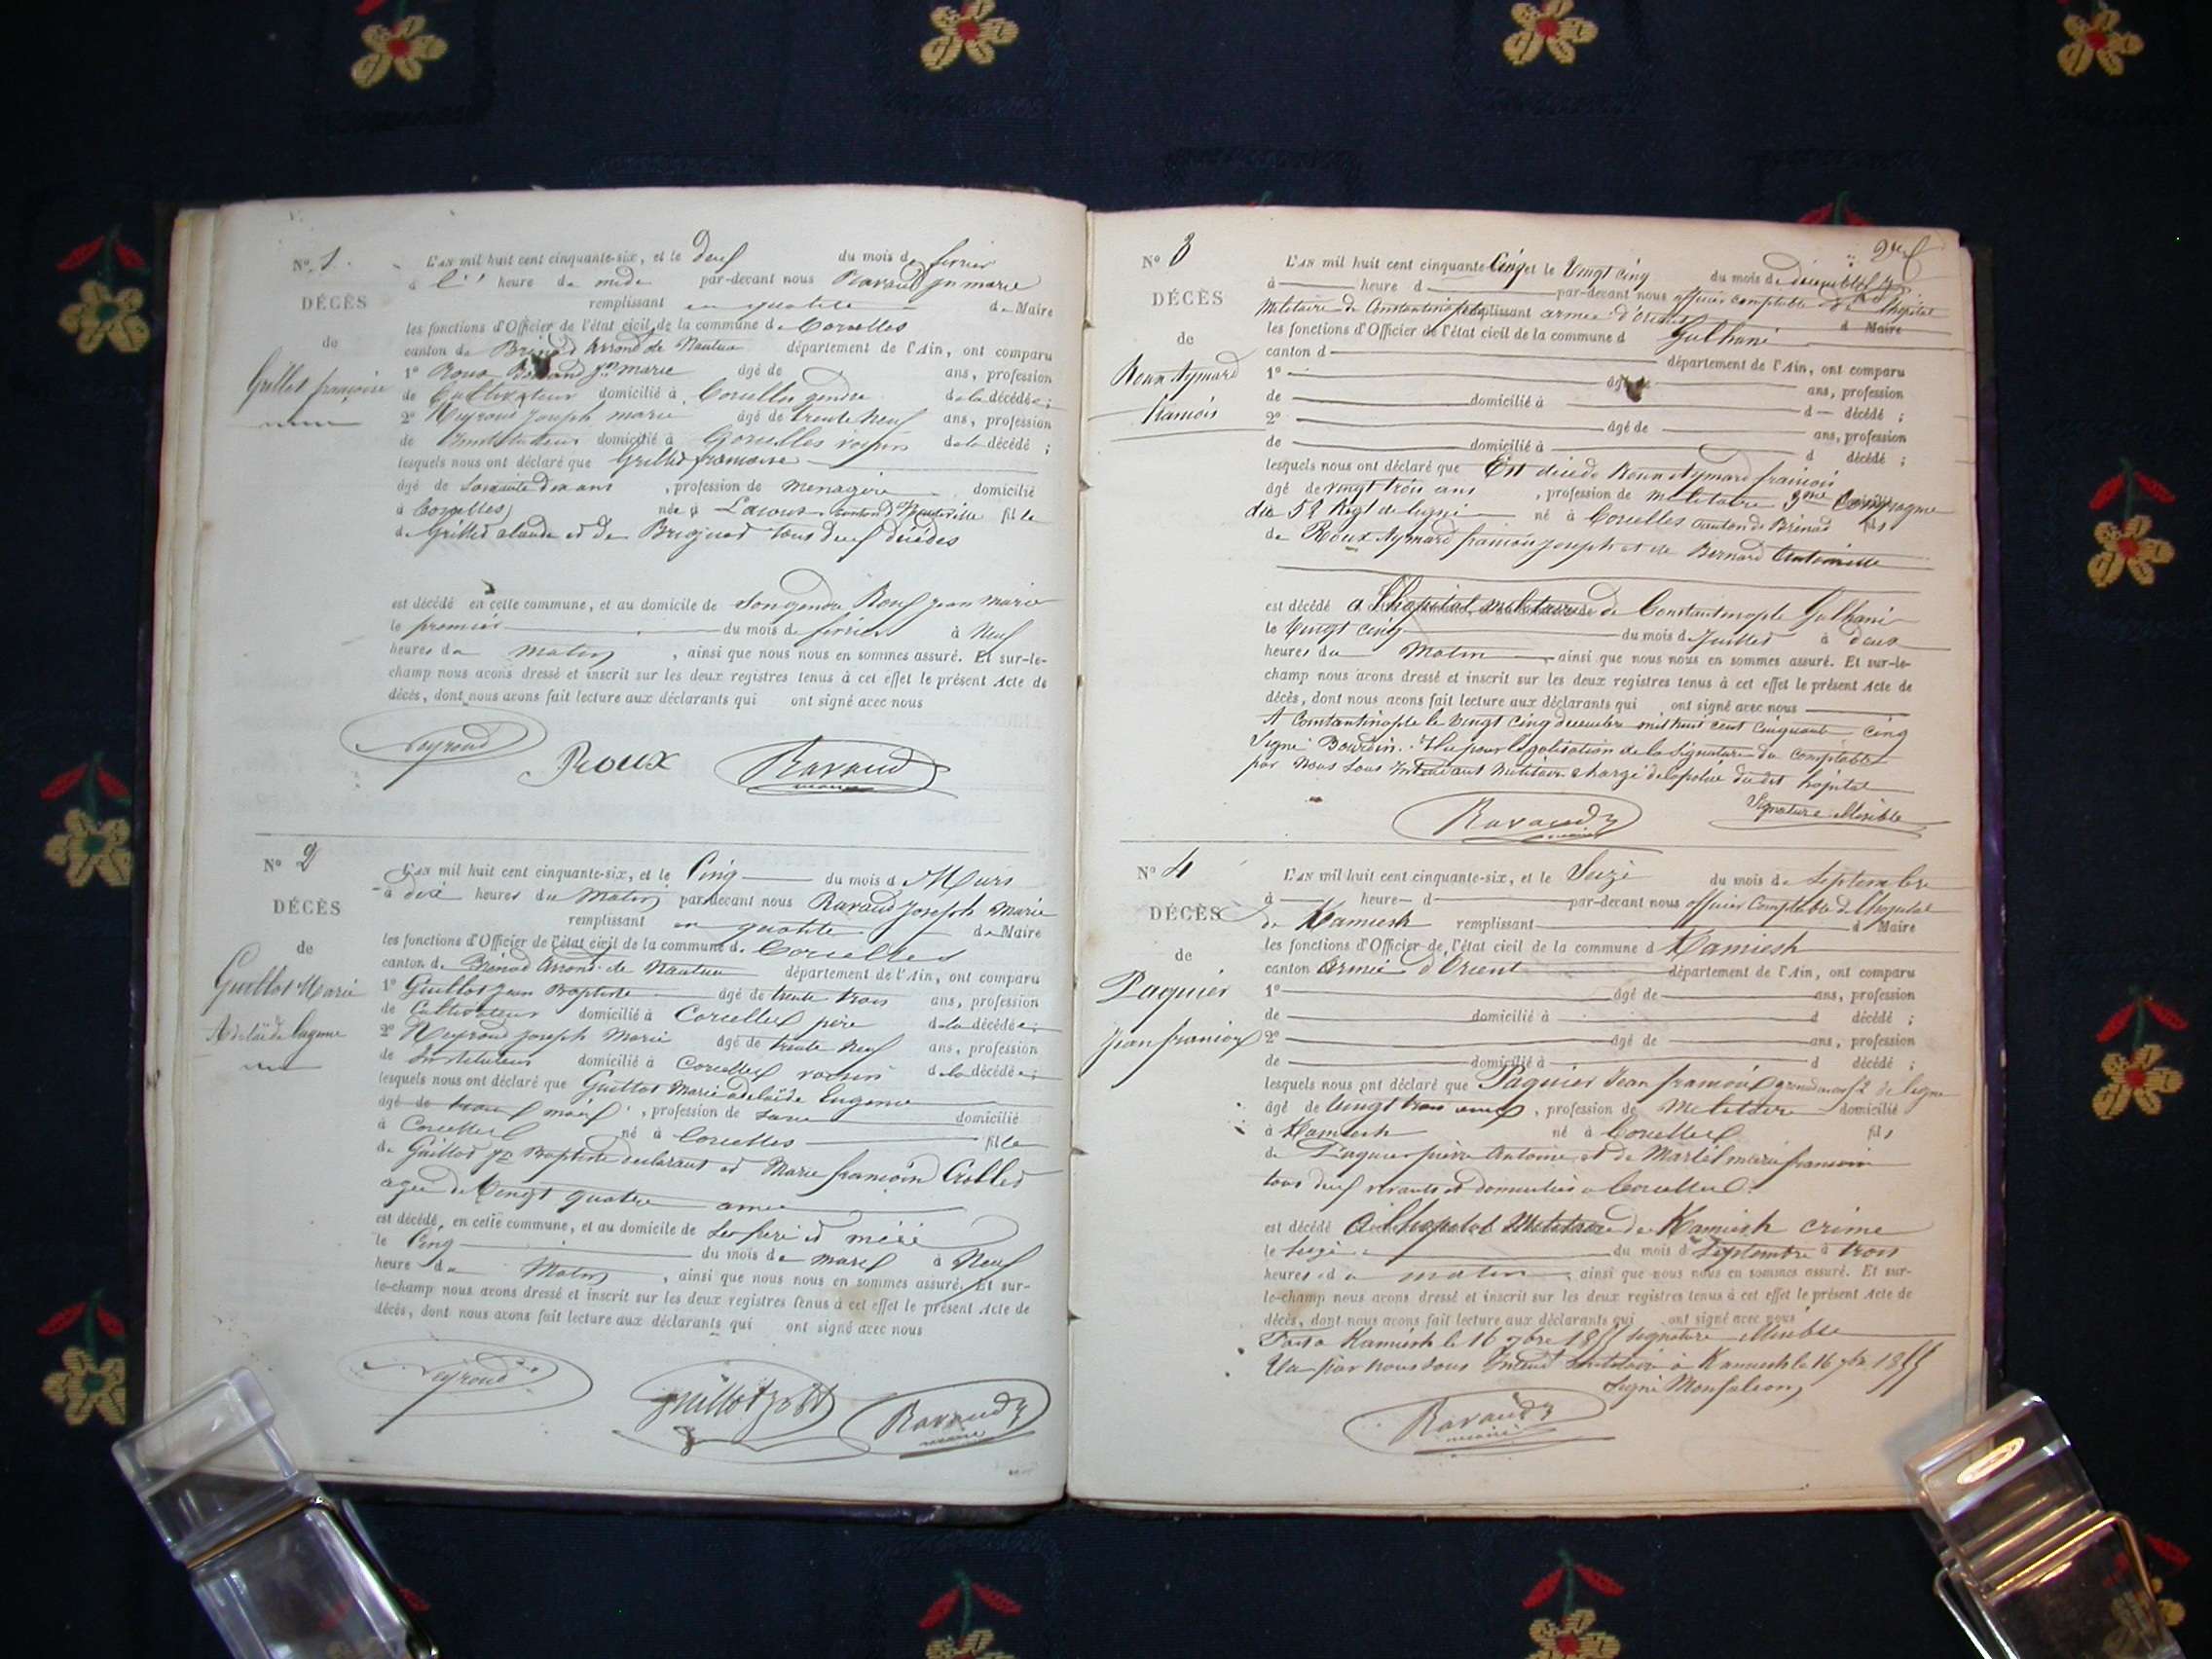 N° 1.
DÉCÈS
de
Grillet françoise
L'AN mil huit cent cinquante-six, et le deux du mois de fevrier
à heure de midi par-devant nous Ravaud jn marie
remplissant en qualité de Maire
les fonctions d'Officier de l'état civil de la commune de Corcelles
canton de Brénod Arrond de Nantua département de l'Ain, ont comparu
1° Roux jn marie âgé de ans, profession
de Cultivateur domicilié à Corcelles gendre de la décédée ;
2° Neyroud Joseph marie âgé de trente neuf ans, profession
de Instituteur domicilié à Corcelles voisin de la décédé ;
lesquels nous ont déclaré que Grillet francoise
âgé de Soixante dix ans , profession de menagère domicilié
à Corcelles née à Lacoux canton d'Hauteville fille
de Grillet claude et de tous deux décédés
est décédé en cette commune, et au domicile de Son gendre Roux jean marie
le premier du mois de fevrier à Neuf
heures du matin , ainsi que nous nous en sommes assuré. Et sur-le-
champ nous avons dressé et inscrit sur les deux registres tenus à cet effet le présent Acte de
décès, dont nous avons fait lecture aux déclarants qui ont signé avec nous
Neyroud Roux Ravaud
maire
N° 2
DÉCÈS
de
Guillot Marie
Adelaïde Eugenie
L'AN mil huit cent cinquante-six, et le Cinq du mois de Mars
à dix heures du Matin par-devant nous Ravaud Joseph Marie
remplissant en qualité de Maire
les fonctions d'Officier de l'état civil de la commune de Corcelles
canton de Brénod Arrond. de Nantua département de l'Ain, ont comparu
1° Guillot Jean Baptiste âgé de trente trois ans, profession
de Cultivateur domicilié à Corcelles père de la décédée ;
2° Neyroud Joseph Marie âgé de trente Neuf ans, profession
de Instituteur domicilié à Corcelles voisin de la décédée ;
lesquels nous ont déclaré que Guillot Marie adelaïde Eugenie
âgé de mois , profession de sans domicilié
à Corcelles né à Corcelles fille
de Guillot jn Baptiste declarant et Marie francoise Grillet
agée de Vingt quatre
est décédé, en cette commune, et au domicile de Ses père et mère
le Cinq du mois de mars à Neuf
heure du Matin , ainsi que nous nous en sommes assuré. Et sur-
le-champ nous avons dressé et inscrit sur les deux registres tenus à cet effet le présent Acte de
décès, dont nous avons fait lecture aux déclarants qui ont signé avec nous
Neyroud guillot Ravaud
maire
N° 3
DÉCÈS
de
Roux Aymard
francois
L'AN mil huit cent cinquante Cinq et le Vingt cinq du mois de décembre
à heure d par-devant nous officier comptable de l'hopital
Militaire de Constantinople remplissant armée d'Orient d Maire
les fonctions d'Officier de l'état civil de la commune d Gulhané
canton d département de l'Ain, ont comparu
1° âgé de ans, profession
de domicilié à d décédé ;
2° âgé de ans, profession
de domicilié à d décédé ;
lesquels nous ont déclaré que Est décédé Roux Aymard francois
âgé de vingt trois ans , profession de militaire 3me Compagnie
du 52 Regt de ligne né à Corcelles canton de Brénod fils
de Roux Aymard francois joseph et de Bernard Antoinette
est décédé à l'hopital militaire de Constantinople Gulhané
le Vingt cinq du mois de Juillet à deux
heures du Matin ainsi que nous nous en sommes assuré. Et sur-le-
champ nous avons dressé et inscrit sur les deux registres tenus à cet effet le présent Acte de
décès, dont nous avons fait lecture aux déclarants qui ont signé avec nous
A Constantinople le Vingt Cinq decembre mil huit cent cinquante cinq
Signé Bourdin. Vu pour légalisation de la Signature du Comptable
par Nous Sous Intendant militaire chargé de la police du dit hopital
Signature illisible
Ravaud
maire
N° 4
DÉCÈS
de
Paquier
Jean francois
L'AN mil huit cent cinquante-six, et le Seize du mois de Septembre
à heure d par-devant nous officier Comptable de l'hopital
de Kamiesh remplissant d Maire
les fonctions d'Officier de l'état civil de la commune d Kamiesh
canton armée d'Orient département de l'Ain, ont comparu
1° âgé de ans, profession
de domicilié à d décédé ;
2° âgé de ans, profession
de domicilié à d décédé ;
lesquels nous ont déclaré que Paquier Jean francois au 52 de ligne
âgé de Vingt trois , profession de Militaire domicilié
à Kamiesh né à Corcelles fils
de Paquier pierre Antoine et de Martel marie francoise
tous deux vivants et domiciliés a Corcelles.
est décédé à l'hopital Militaire de Kamiesh crimé
le Seize du mois d Septembre à trois
heures du matin , ainsi que nous nous en sommes assuré. Et sur-
le-champ nous avons dressé et inscrit sur les deux registres tenus à cet effet le présent Acte de
décès, dont nous avons fait lecture aux déclarants qui ont signé avec nous
Fait a Kamiesh le 16 7bre 1855 signature illisible
Vu par nous sous Intend militaire à Kamiesh le 16 7bre 1855
Signé Monfalcon
Ravaud
maire